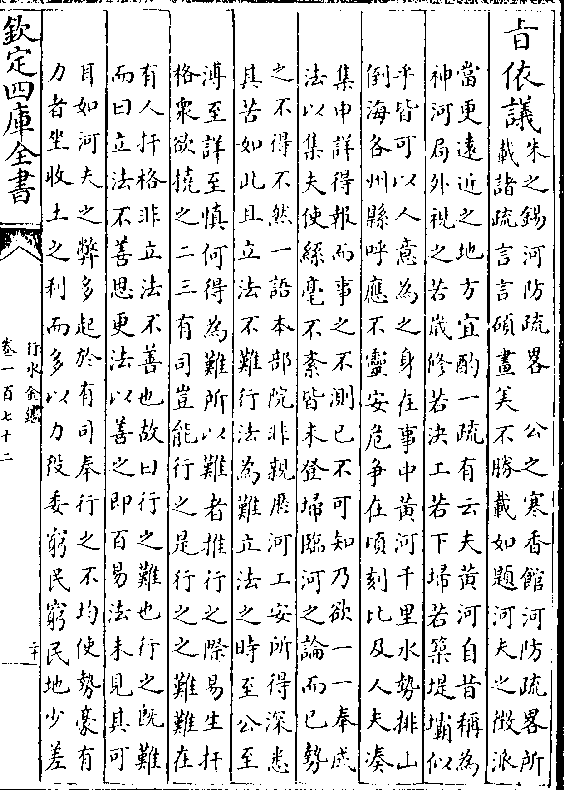 旨依議
朱之錫河防疏畧 公之寒香館河防疏畧所
載諸疏言言碩畫美不勝載如題河夫之徵派
當更遠近之地方宜酌一疏有云夫黃河自昔稱為
神河局外視之若歲修若決工若下埽若築堤壩似
乎皆可以人意為之身在事中黃河千里水勢排山
倒海各州縣呼應不靈安危爭在頃刻比及人夫湊
集申詳得報而事之不測已不可知乃欲一一奉成
法以集夫使絲毫不紊皆未登埽臨河之論而已勢
之不得不然一語本部院非親厯河工安所得深悉
其苦如此且立法不難行法為難立法之時至公至
溥至詳至慎何得為難所以難者推行之際易生扞
格衆欲撓之二三有司豈能行之是行之之難難在
有人扞格非立法不善也故曰行之難也行之既難
而曰立法不善思更法以善之即百易法未見其可
耳如河夫之弊多起於有司奉行之不均使勢豪有
力者坐收土之利而多以力役委窮民窮民地少差
欽定四庫全書
行水金鑑
卷一百七十二
二十